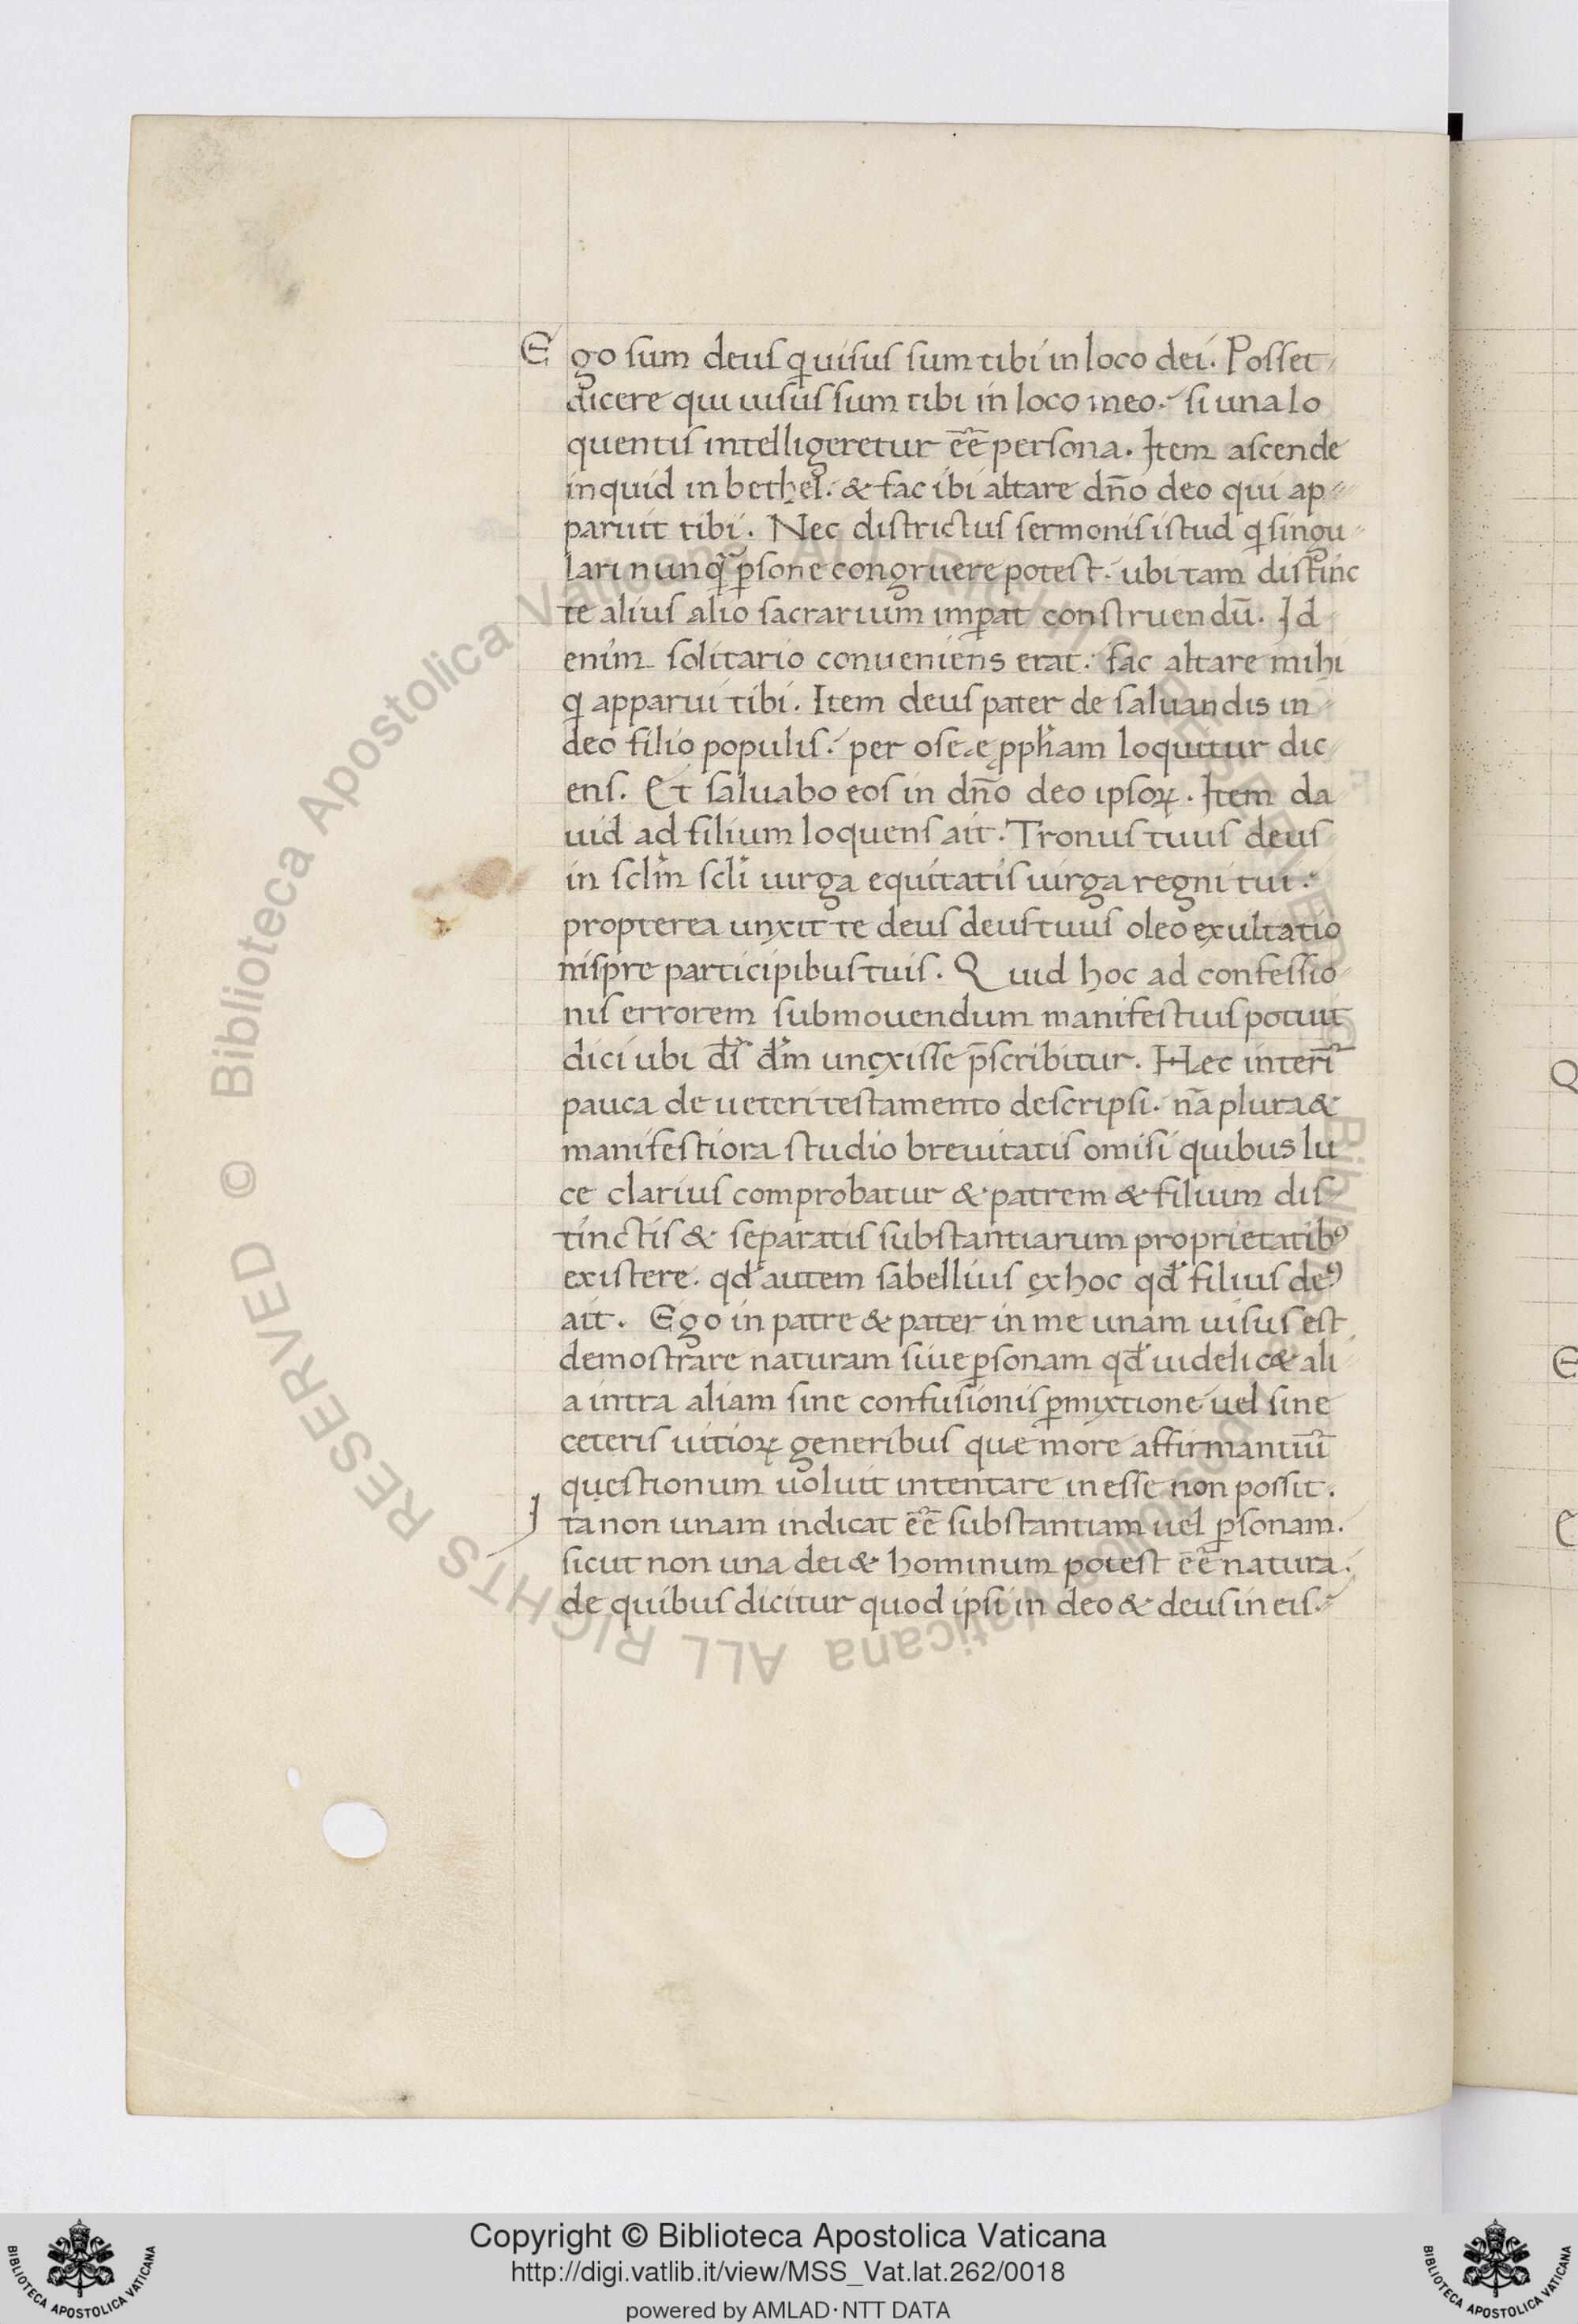 Ego sum deus q̇ uisus sum tibi in loco dei. Posset
dicere qui uisus sum tibi in loco meo. si una lo
quentis intelligeretur e̅e̅ persona. Item ascende
inquid in bethel. & fac ibi altare dn̅o deo qui ap-
paruit tibi. Nec districtus sermonis istud q̇ singu-
lari nunq̃ ꝑsone congruere potest. ubi tam distinc
te alius alio sacrarium imꝑat construendu̅. Id
enim solitario conueniens erat. fac altare mihi
q̇ apparui tibi. Item deus pater de saluandis in
deo filio populis. per oseę ꝓph̅am loquitur dic
ens. Et saluabo eos in dn̅o deo ipsoꝝ. Item da
uid ad filium loquens ait. Tronus tuus deus
in scl̅m scl̅i uirga equitatis uirga regni tui.
propterea unxit te deus deus tuus oleo exultatio
nis pre participibus tuis. Quid hoc ad confessio
nis errorem submouendum manifestius potuit
dici ubi ds̅ dm̅ unxisse p̅scribitur. Hec interi̅
pauca de ueteri testamento descripsi. na̅ plura &
manifestiora studio breuitatis omisi quibus lu
ce clarius comprobatur & patrem & filium dis
tinctis & separatis substantiarum proprietatibꝰ
existere. qd̅ autem sabellius ex hoc qd̅ filius deꝰ
ait. Ego in patre & pater in me unam uisus est
demostrare naturam siue ꝑsonam qd̅ uidelic& ali
a intra aliam sine confusionis ꝑmixtione uel sine
ceteris uitioꝝ generibus quæ more affirmantiu̅
questionum uoluit intentare inesse non possit.
Ita non unam indicat e̅e̅ substantiam uel ꝑsonam.
sicut non una dei & hominum potest e̅e̅ natura.
de quibus dicitur quod ipsi in deo & deus in eis.
Q
E
E
© Biblioteca Apostolica Vaticana ALL RIGHTS RESERVED
Copyright © Biblioteca Apostolica Vaticana
http://digi.vatlib.it/view/MSS_Vat.lat.262/0018
powered by AMLAD·NTT DATA
BIBLIOTECA APOSTOLICA VATICANA
BIBLIOTECA APOSTOLICA VATICANA